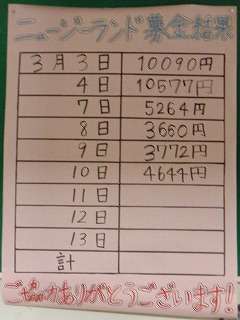 ニュージーランド募金結果
3月3日 10090円
4日 10577円
7日 5264円
8日 3660円
9日 3772円
10日 4644円
11日
12日
13日
計
ご協力ありがとうございます!